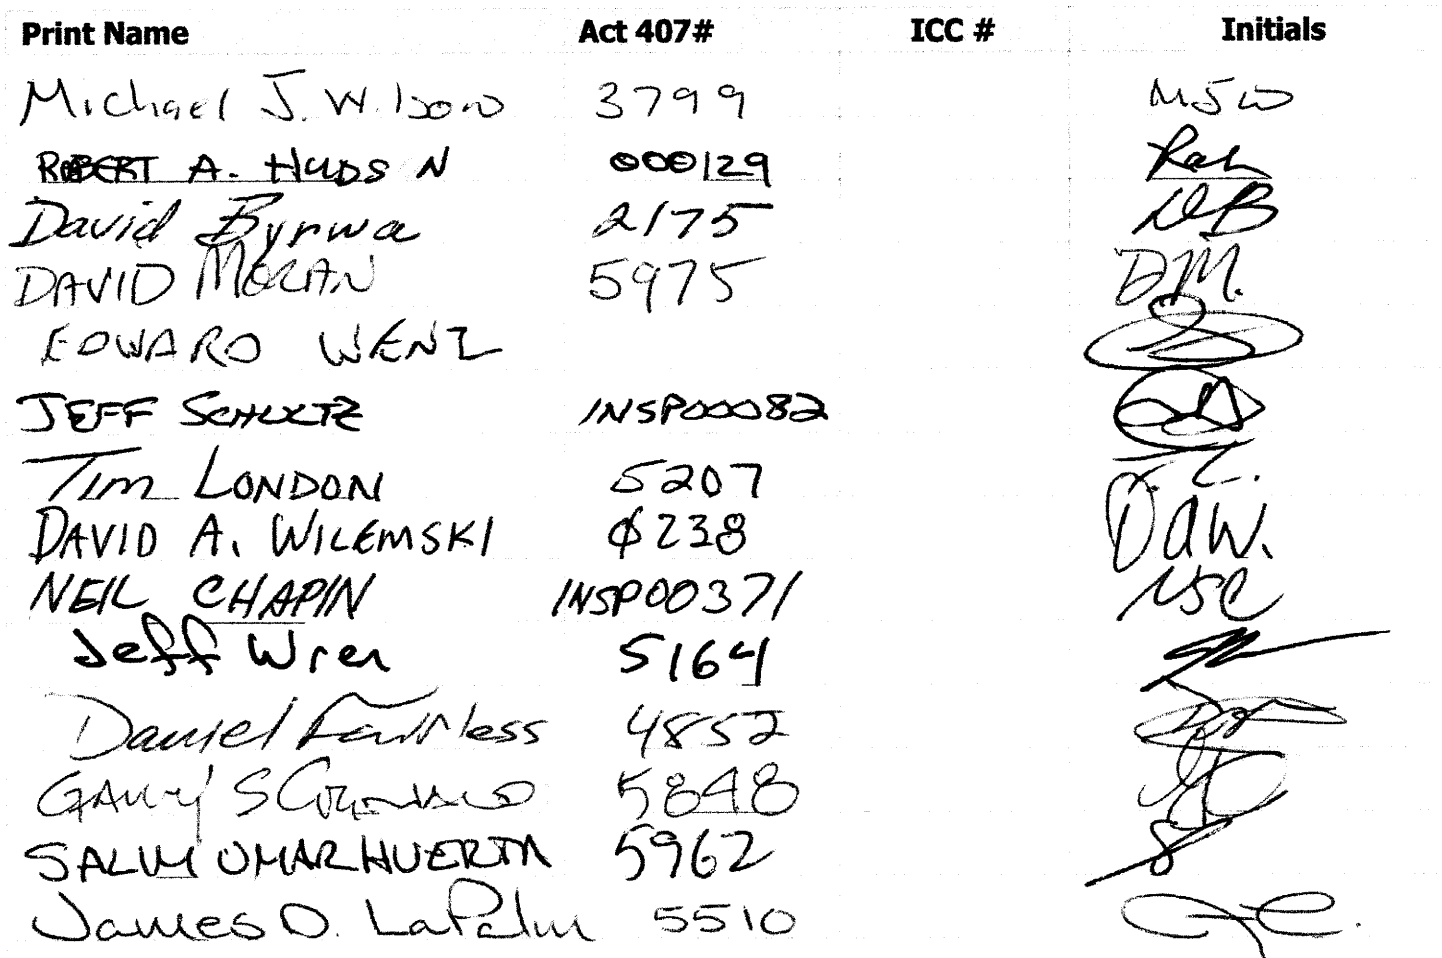 Print Name Act 407# ICC # Initials
Michael J. Wilson 3799 MJW
ROBERT A. HUDS N 000129 Rah
David Byrwa 2175 DB
DAVID MORAN 5975 D.M.
EDWARD WENZ
JEFF SCHULTZ INSP00082
TIM LONDON 5207 T.L.
DAVID A. WILEMSKI 0238 DAW.
NEIL CHAPIN INSP00371 NSC
Jeff Wren 5164
Daniel Fairless 4852
GARRY S 5848
SALVY OMAR HUERTA 5962
James D. LaPalm 5510